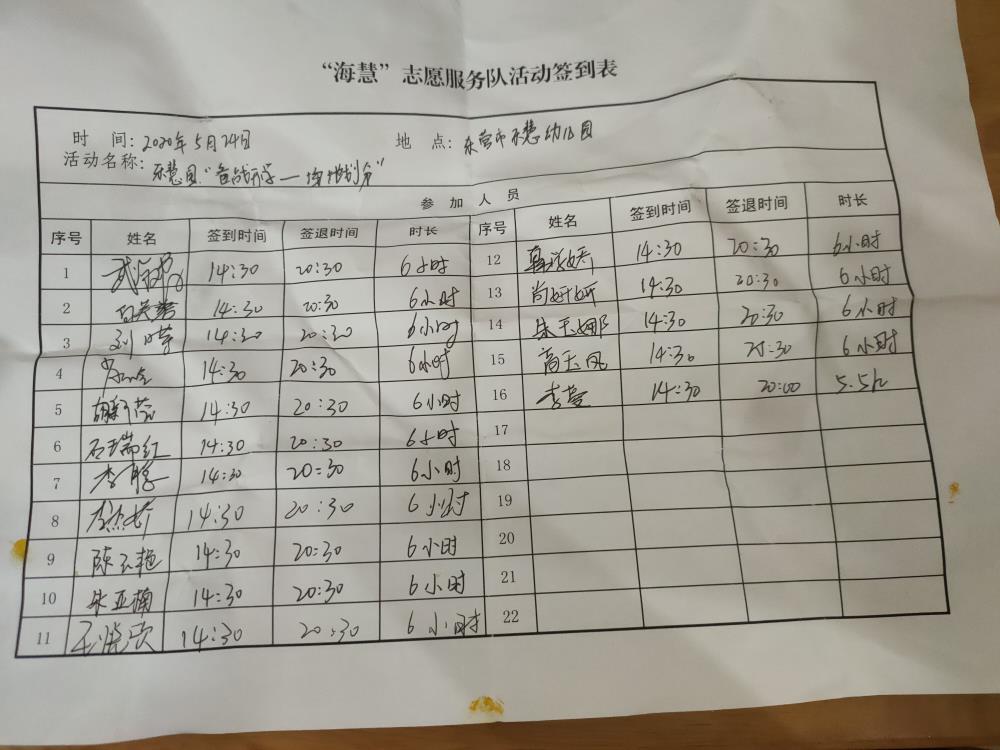 “海慧”志愿服务队活动签到表
时 间: 2020年5月24日 地 点: 东营市乐慧幼儿园
活动名称: 乐慧园“备战开学— 场地划分”
参 加 人 员
序号 姓名 签到时间 签退时间 时长 序号 姓名 签到时间 签退时间 时长
1 14:30 20:30 6小时 12 14:30 20:30 6小时
2 14:30 20:30 6小时 13 尚妍妍 14:30 20:30 6小时
3 刘 14:30 20:30 6小时 14 朱玉娜 14:30 20:30 6小时
4 14:30 20:30 6小时 15 高玉凤 14:30 20:30 6小时
5 14:30 20:30 6小时 16 李蔓 14:30 20:00 5.5h
6 石瑞红 14:30 20:30 6小时 17
7 李 14:30 20:30 6小时 18
8 14:30 20:30 6小时 19
9 陈云艳 14:30 20:30 6小时 20
10 朱亚楠 14:30 20:30 6小时 21
11 王晓欣 14:30 20:30 6小时 22